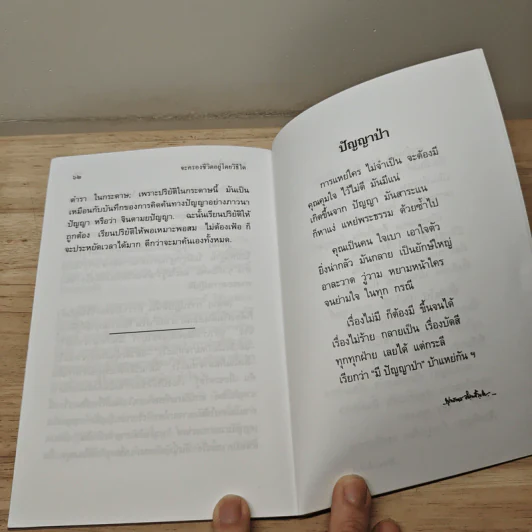 ๖๒
จะครองชีวิตอยู่โดยวิธีใด
ตำรา ในกระดาษ; เพราะปริยัติในกระดาษนี้ มันเป็น
เหมือนกับบันทึกของการคิดค้นทางปัญญาอย่างภาวนา
ปัญญา หรือว่า จินตามยปัญญา. ฉะนั้นเรียนปริยัติให้
ถูกต้อง เรียนปริยัติให้พอเหมาะพอสม ไม่ต้องเฟ้อ ก็
จะประหยัดเวลาได้มาก ดีกว่าจะมาค้นเองทั้งหมด.
ปัญญาป่า
การแหย่ใคร ไม่จำเป็น จะต้องมี
คุณคุมใจ ไว้ไม่ดี มันมีแน่
เกิดขึ้นจาก ปัญญา มันสาระแน
ก็หาแง่ แหย่พระธรรม ด้วยซ้ำไป
คุณเป็นคน ใจเบา เอาใจตัว
ยิ่งน่ากลัว มันกลาย เป็นยักษ์ใหญ่
อาละวาด วู่วาม หยามหน้าใคร
จนย่ามใจ ในทุก กรณี
เรื่องไม่มี ก็ต้องมี ขึ้นจนได้
เรื่องไม่ร้าย กลายเป็น เรื่องบัดสี
ทุกทุกฝ่าย เลยได้ แต่กระลี
เรียกว่า "มี ปัญญาป่า" บ้าแหย่กัน ฯ